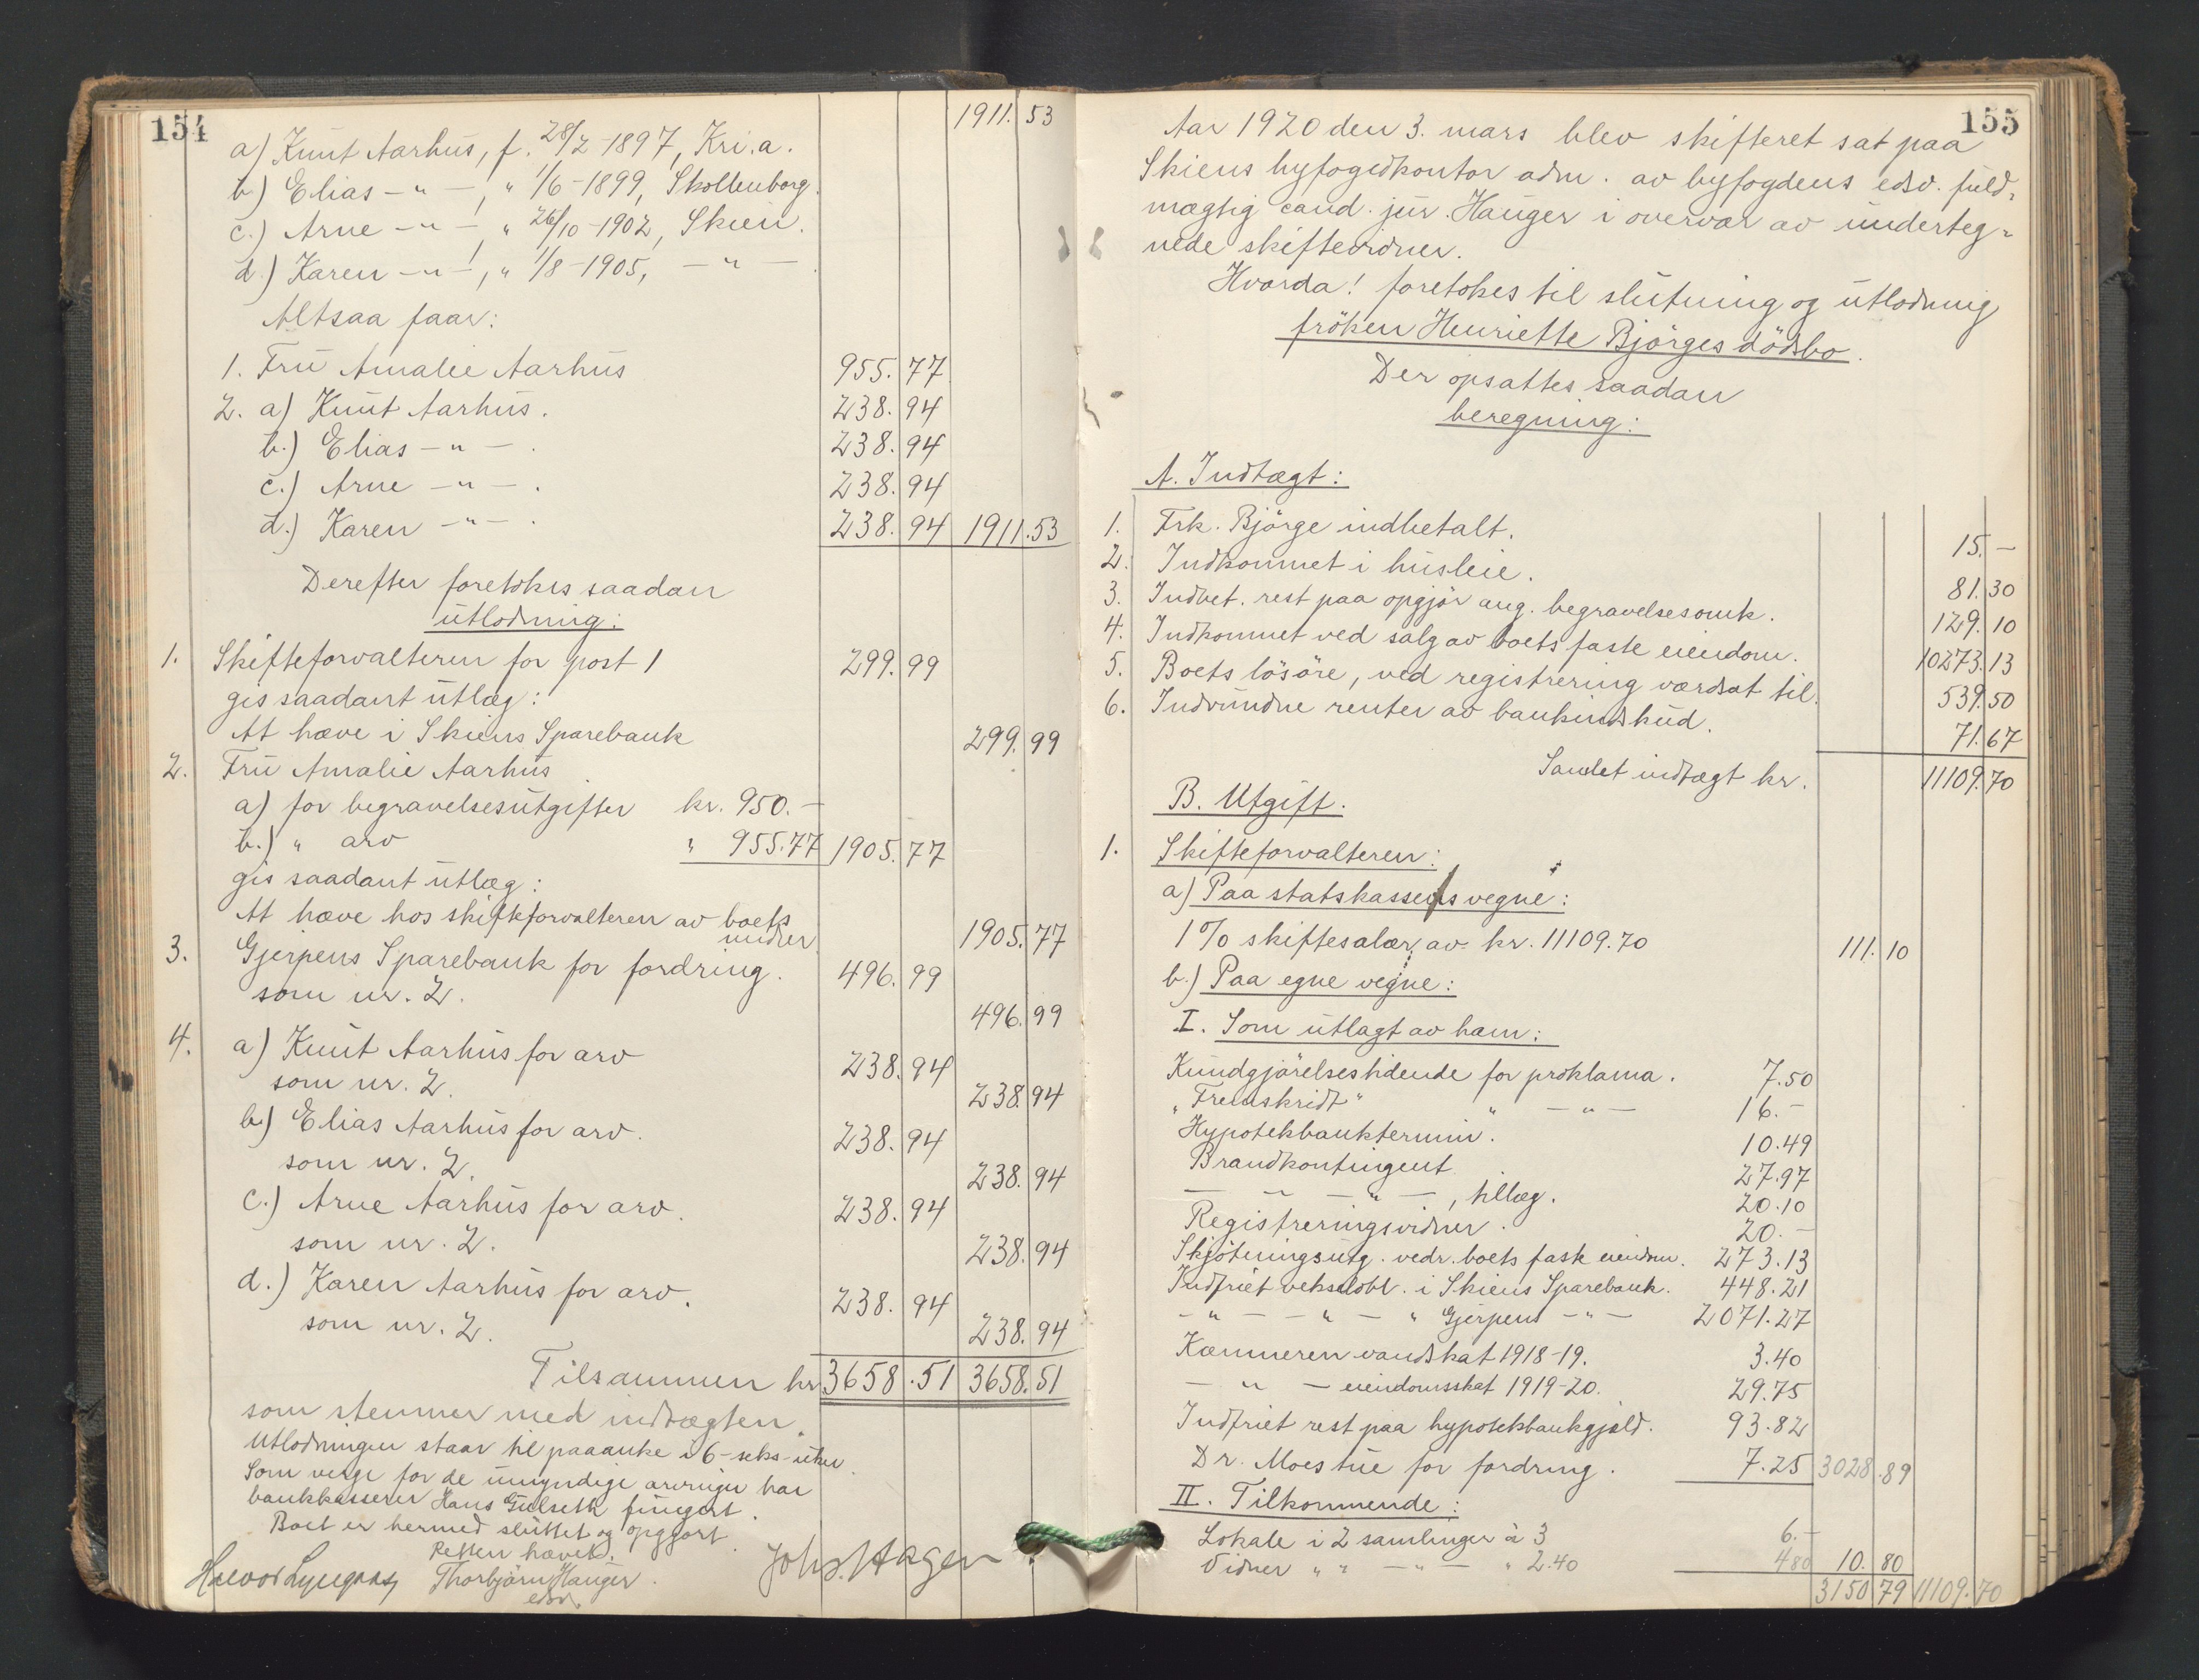 154
1911. 53
a) Knut Aarhus, f. 28/2-1897, Kri.a.
b) Elias -"-, " 1/6-1899, Skollenborg.
c.) Arne -"-, " 26/10-1902, Skien.
d.) Karen -"-, " 1/8-1905, -"-
Altsaa faar:
1. Fru Amalie Aarhus 955. 77
2. a) Knut Aarhus. 238. 94
b.) Elias -"-. 238. 94
c.) Arne -"-. 238. 94
d.) Karen -"-. 238. 94 1911. 53
Derefter foretokes saadan
utlodning:
1. Skifteforvalteren for post 1 299. 99
gis saadant utlæg:
At hæve i Skiens Sparebank 299. 99
2. Fru Amalie Aarhus
a) for begravelsesutgifter kr. 950.-
b.) " arv " 955.77 1905. 77
gis saadant utlæg:
At hæve hos skifteforvalteren av boets
midler 1905. 77
3. Gjerpens Sparebank for fordring. 496. 99
som nr. 2. 496. 99
4. a) Knut Aarhus for arv 238. 94
som nr. 2. 238. 94
b.) Elias Aarhus for arv. 238. 94
som nr. 2. 238. 94
c.) Arne Aarhus for arv. 238. 94
som nr. 2. 238. 94
d.) Karen Aarhus for arv. 238. 94
som nr. 2. 238. 94
Tilsammen kr 3658. 51 3658. 51
som stemmer med indtægten.
Utlodningen staar til paaanke i 6-seks-uker.
Som verge for de umyndige arvinger har
bankkasserer Hans Gulseth fungert.
Boet er hermed sluttet og opgjort.
Retten hævet.
Halvor Lyngaas Thorbjørn Hauger. Johs. Hagen
edsv.
155
Aar 1920 den 3. mars blev skifteret sat paa
Skiens byfogedkontor adm. av byfogdens edsv. fuld-
mægtig cand. jur. Hauger i overvær av underteg-
nede skiftevidner.
Hvorda! foretokes til slutning og utlodning
fröken Henriette Bjørges dödsbo.
Der opsattes saadan
beregning:
A. Indtægt:
1. Frk. Bjørge indbetalt. 15. -
2. Indkommet i husleie. 81. 30
3. Indbet. rest paa opgjör ang. begravelsesomk. 129. 10
4. Indkommet ved salg av boets faste eiendom. 10273. 13
5. Boets lösöre, ved registrering værdsat til. 539. 50
6. Indvundne renter av bankindskud. 71. 67
Samlet indtægt kr. 11109. 70
B. Utgift.
1. Skifteforvalteren:
a) Paa statskassens vegne:
1% skiftesalær av kr. 11109.70 111. 10
b.) Paa egne vegne:
I. Som utlagt av ham:
Kundgjörelsestidende for proklama. 7.50
"Fremskridt" " -"- 16.-
Hypotekbanktermin. 10.49
Brandkontingent 27.97
-"-, tillæg. 20.10
Registreringsvidner. 20.-
Skjötningsutg. vedr. boets faste eiendom. 273.13
Indfriet vekselobl. i Skiens Sparebank. 448.21
-"- -"- " Gjerpens -"- 2071.27
Kæmneren vandskat 1918-19. 3.40
-"- eiendomsskat 1919-20. 29.75
Indfriet rest paa hypotekbankgjæld. 93.82
Dr. Moestue for fordring. 7.25 3028. 89
II. Tilkommende:
Lokale i 2 samlinger à 3 6.-
Vidner " " -"- " 2.40 480 10. 80
3150 79 11109. 70